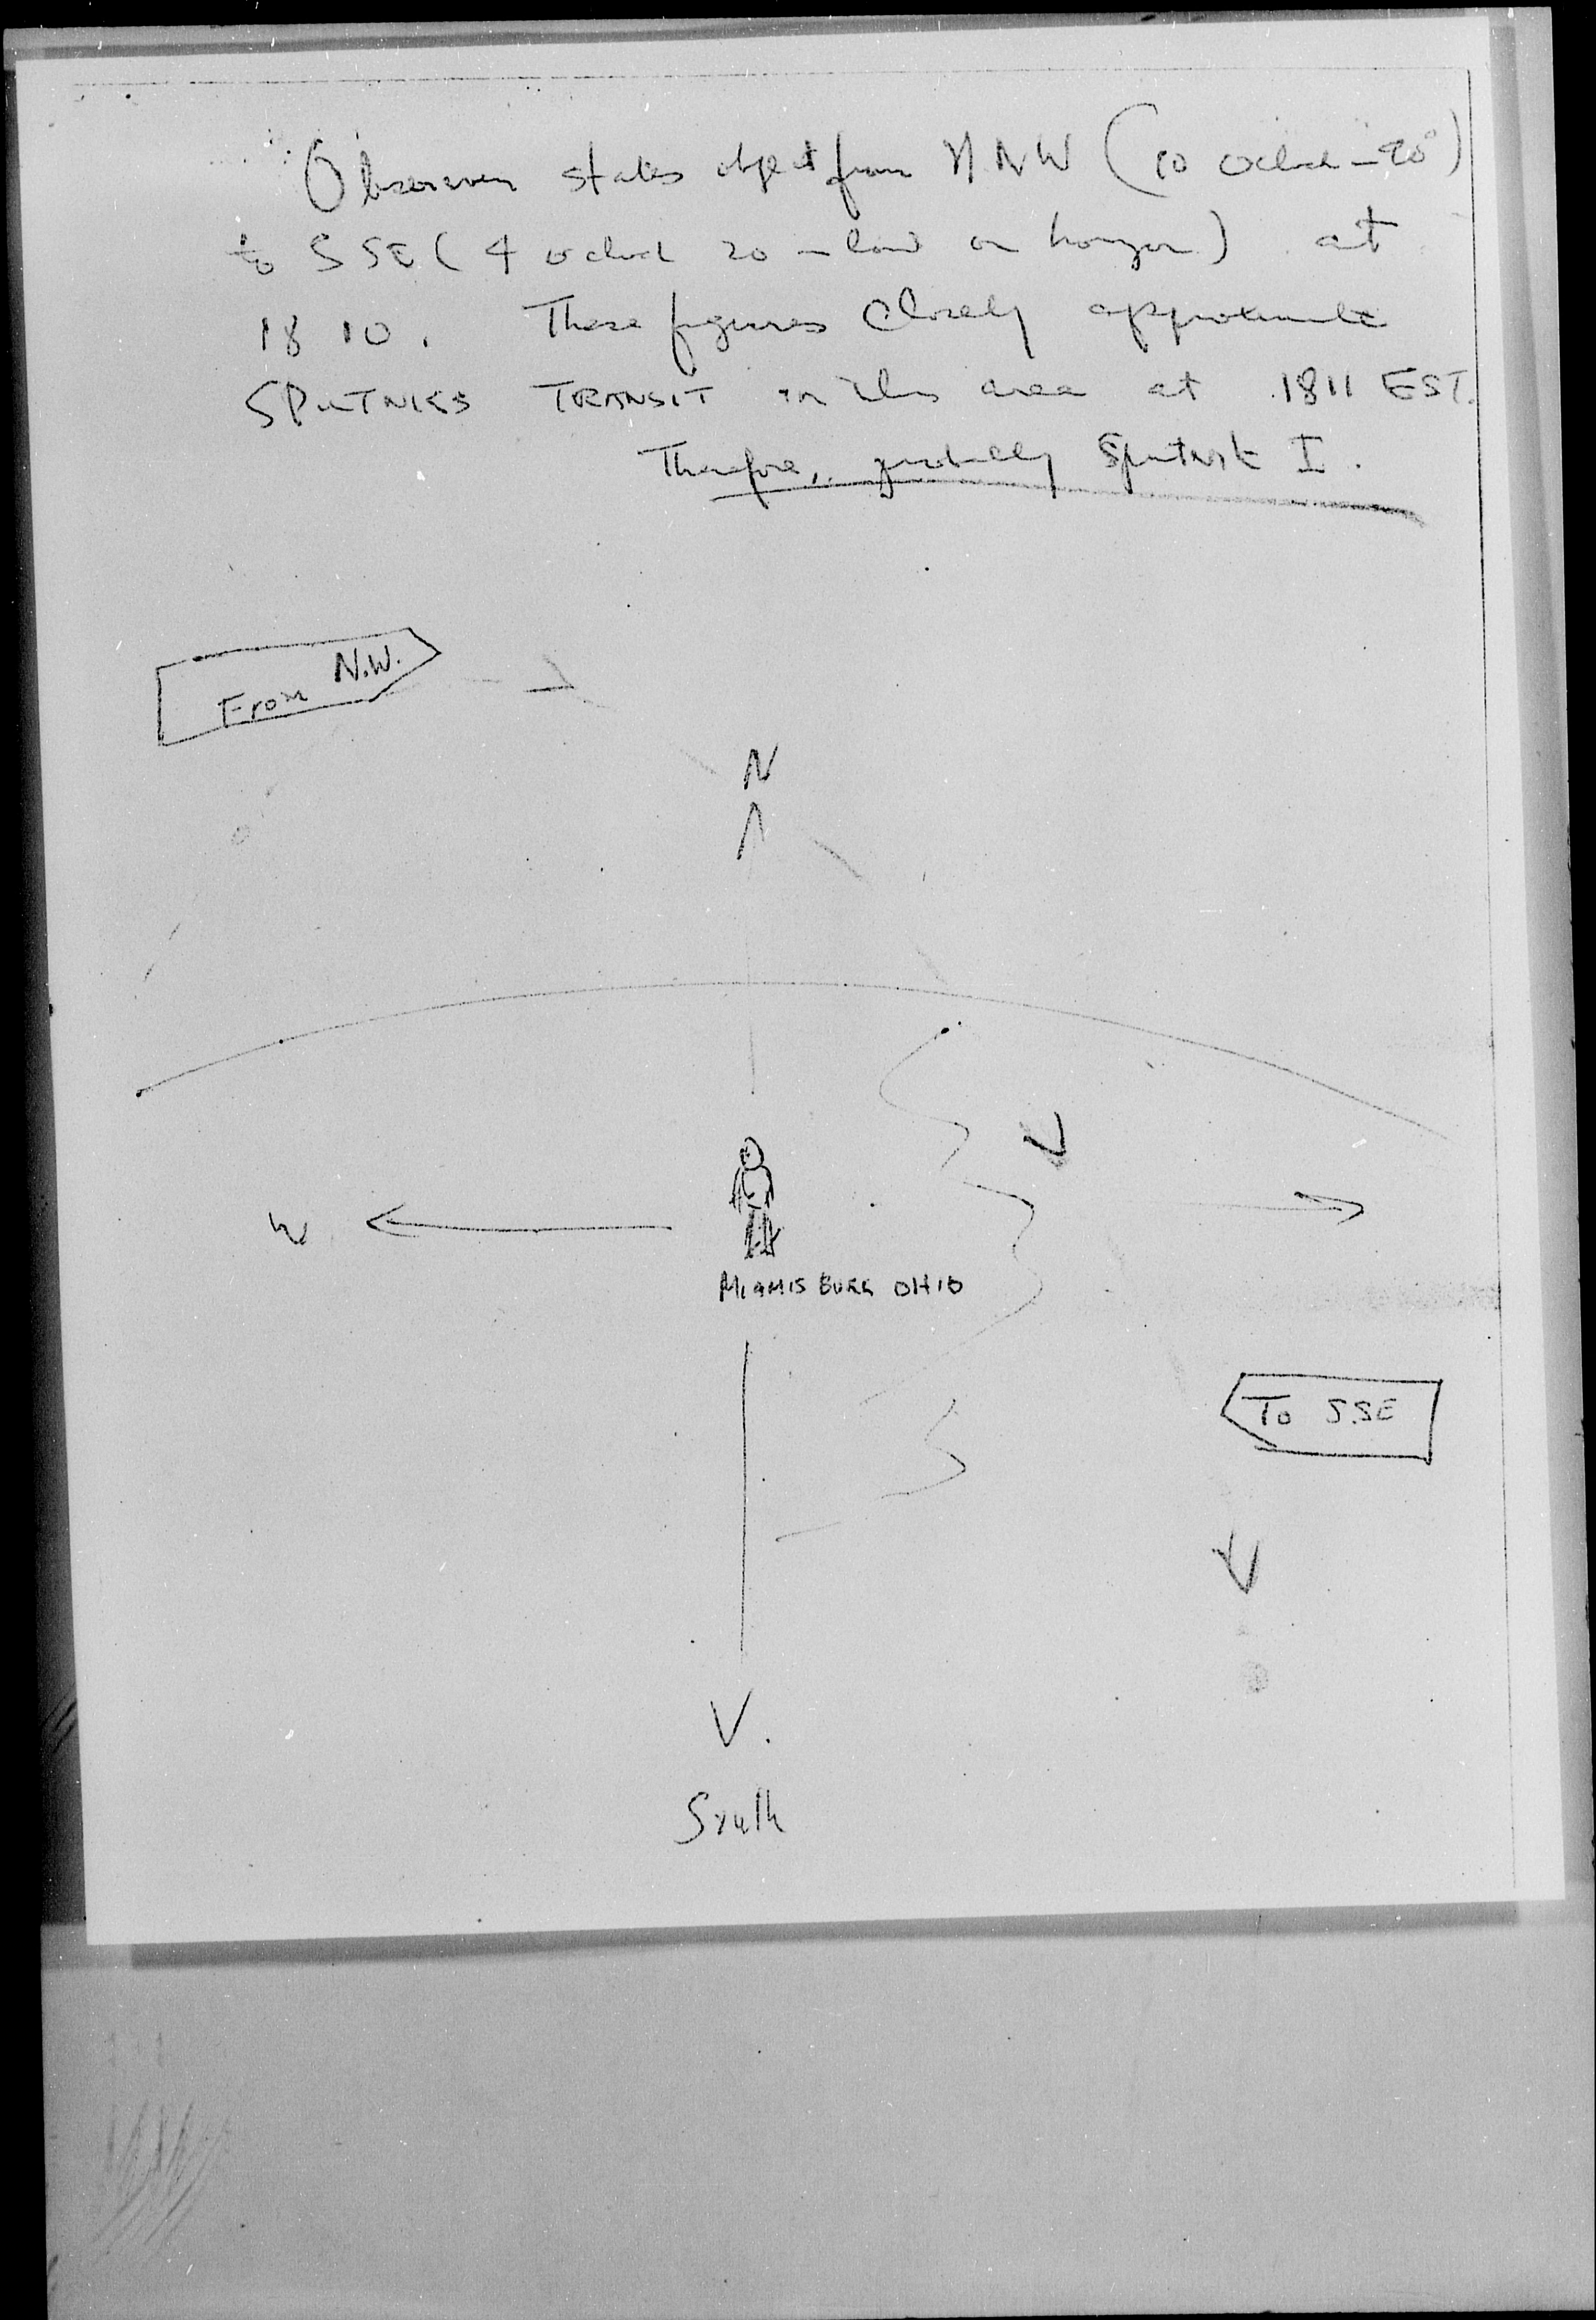 Observer states object from NNW (10 oclock - 20°)
to SSE (4 oclock 20 - low on horizon) at
1810. These figures closely approximate
SPUTNIKS TRANSIT in this area at 1811 EST.
Therefore, probably Sputnik I.
From N.W.
N
W
MIAMISBURG OHIO
To SSE
South